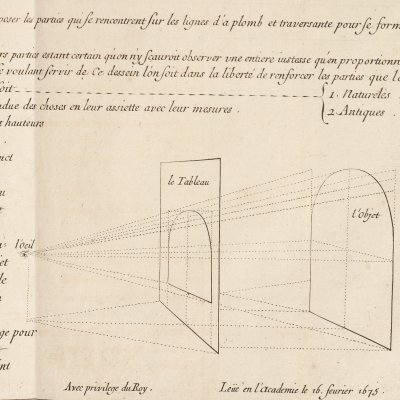 poser les parties qui se rencontrent sur les lignes d'a plomb et traversante pour se form
rs parties estant certain qu'on n'y scauroit observer une entiere iustesse qu'en proportionna
voulant servir de Ce dessein l'on soit dans la liberté de renforcer les parties que l
soit
1. Natureles
due des choses en leur assiette avec leur mesures.
2. Antiques.
t hauteurs
nct
le Tableau
u
l'Objet
t
l'oeil
et
le
n
ge pour
nt
Avec privilege du Roy.
Leüe en l'Academie le 16. feurier 1675.